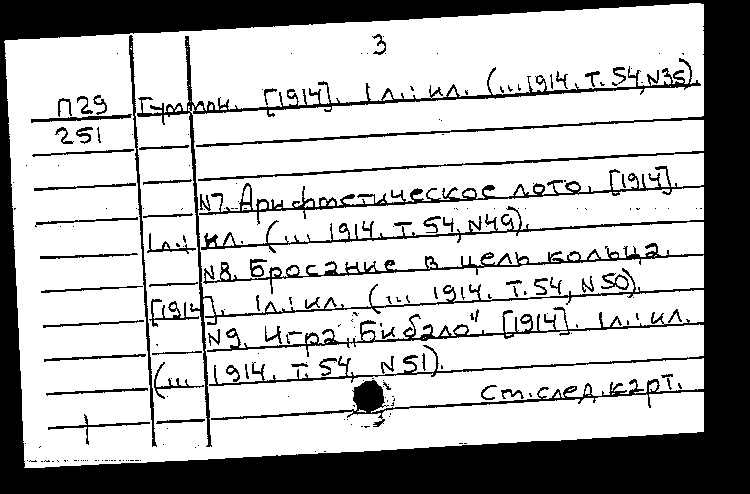 3
П29 [1914]. 1 л.: ил. (...1914. Т. 54, N35).
251
N7. Арифметическое лото. [1914].
1л.: ил. (... 1914. Т. 54, N49).
N8. Бросание в цель кольца.
[1914]. 1л.: ил. (... 1914. Т. 54, N50).
N9. Игра „Бибало". [1914]. 1л.: ил.
(... 1914. Т. 54, N51).
См. след. карт.